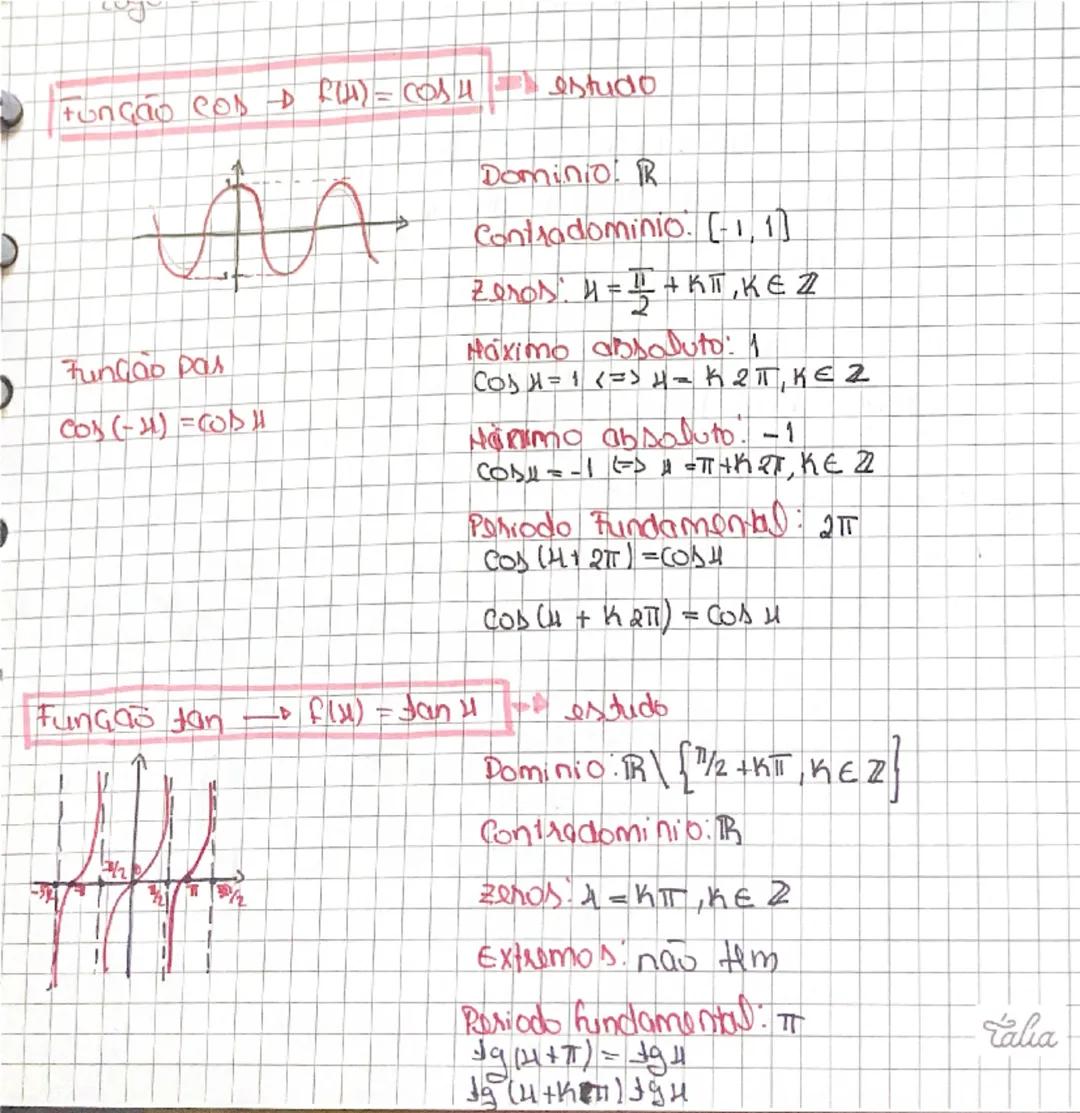 Função cos → f(x) = cos x → estudo
Dominio: ℝ
Contradominio: [-1, 1]
Zeros: x = π/2 + Kπ, K ∈ ℤ
Função par
cos(-x) = cos x
Máximo absoluto: 1
Cos x = 1 <=> x = K 2π, K ∈ ℤ
Mínimo absoluto: -1
cos x = -1 <=> x = π + K 2π, K ∈ ℤ
Periodo Fundamental: 2π
cos (x + 2π) = cos x
cos (x + K 2π) = cos x
Função tan → f(x) = tan x → estudo
Dominio: ℝ \ {π/2 + Kπ, K ∈ ℤ}
Contradominio: ℝ
Zeros: x = Kπ, K ∈ ℤ
-π/2 0
π/2 π 3π/2
Extremos: não tem
Periodo fundamental: π
tg (x + π) = tg x
tg (x + Kπ) tg x
Talia